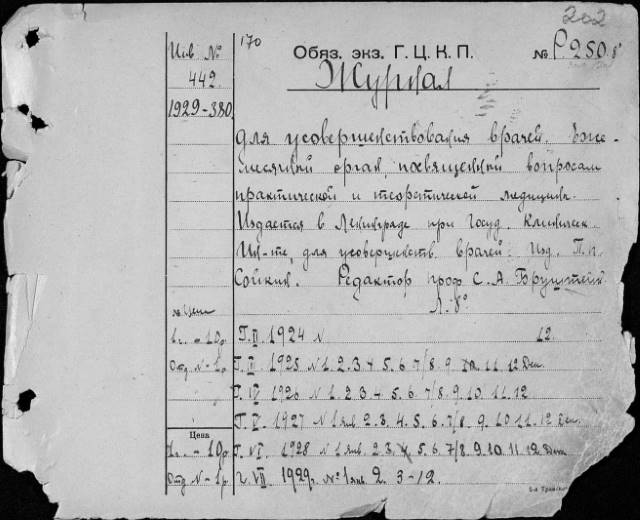 202
Инв №
170
Обяз. экз. Г.Ц.К.П.
№ Р.250
442
Журнал
1929-380
для усовершенствования врачей. Еже-
месячный орган, посвященный вопросам
практической и теоретической медицины.
Издается в Ленинграде при Госуд. Клиническ.
Ин-те для усовершенств. врачей: Изд. П.П.
Сойкин. Редактор проф С. А. Бруштейн
Л. 8°
№ Цена
1 г. - 10р Г. II 1924 N 12
Отд N - 1р Г. III 1925 N 1. 2. 3 4 5. 6 7/8 9 10 11. 12 Дек.
Г. IV 1926 N 1. 2 3 4 5. 6. 7/8. 9. 10 11. 12
Г. V. 1927 N 1 янв 2. 3. 4. 5. 6. 7/8 9. 10 11. 12 Дек.
Цена
1 г. - 10р Г. VI. 1928 N 1 янв. 2 3. 4 5. 6. 7/8 9. 10 11 12 Дек
Отд N - 1р Г. VII 1929г. № 1 янв 2. 3-12.